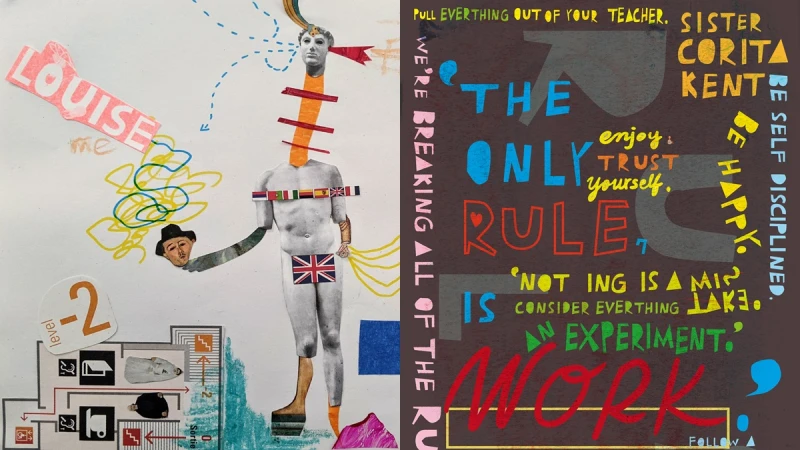 LOUISE
me
level
-2
2
0
Sortie
PULL EVERTHING OUT OF YOUR TEACHER.
SISTER
CORITA
KENT
WE'RE BREAKING ALL OF THE RU
'THE
ONLY
enjoy.
TRUST
yourself.
RULE
7
IS
'NOT ING IS A MIS
TAKE.
CONSIDER EVERTHING
AN EXPERIMENT.'
WORK
BE HAPPY.
BE SELF DISCIPLINED.
FOLLOW A